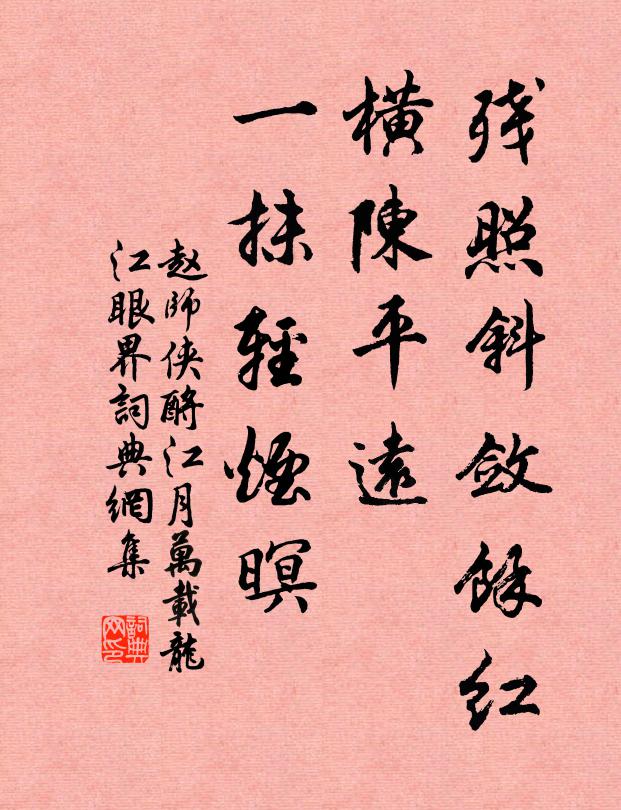 残照斜斂餘紅
橫陳平遠
一抹輕煙暝
赵師侠酹江月萬載龍
江眼界詞典網集
詞典
网印